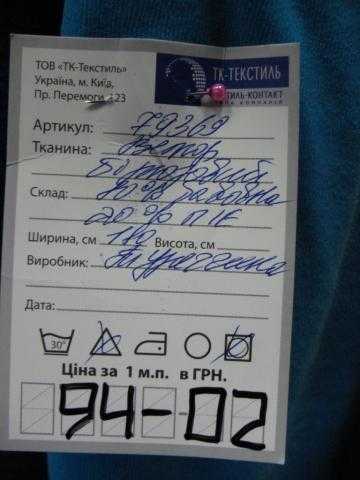 ТОВ «ТК-Текстиль»
Україна, м. Київ,
Пр. Перемоги, 123
ТК-ТЕКСТИЛЬ
ТИЛЬ-КОНТАКТ
Артикул: 79369
Тканина: Велюр
Біркодовий
Склад: 80% бавовна
20% ПЕ
Ширина, см 182 Висота, см
Виробник: Туреччина
Дата:
30°
Ціна за 1 м.п. в ГРН.
94-02